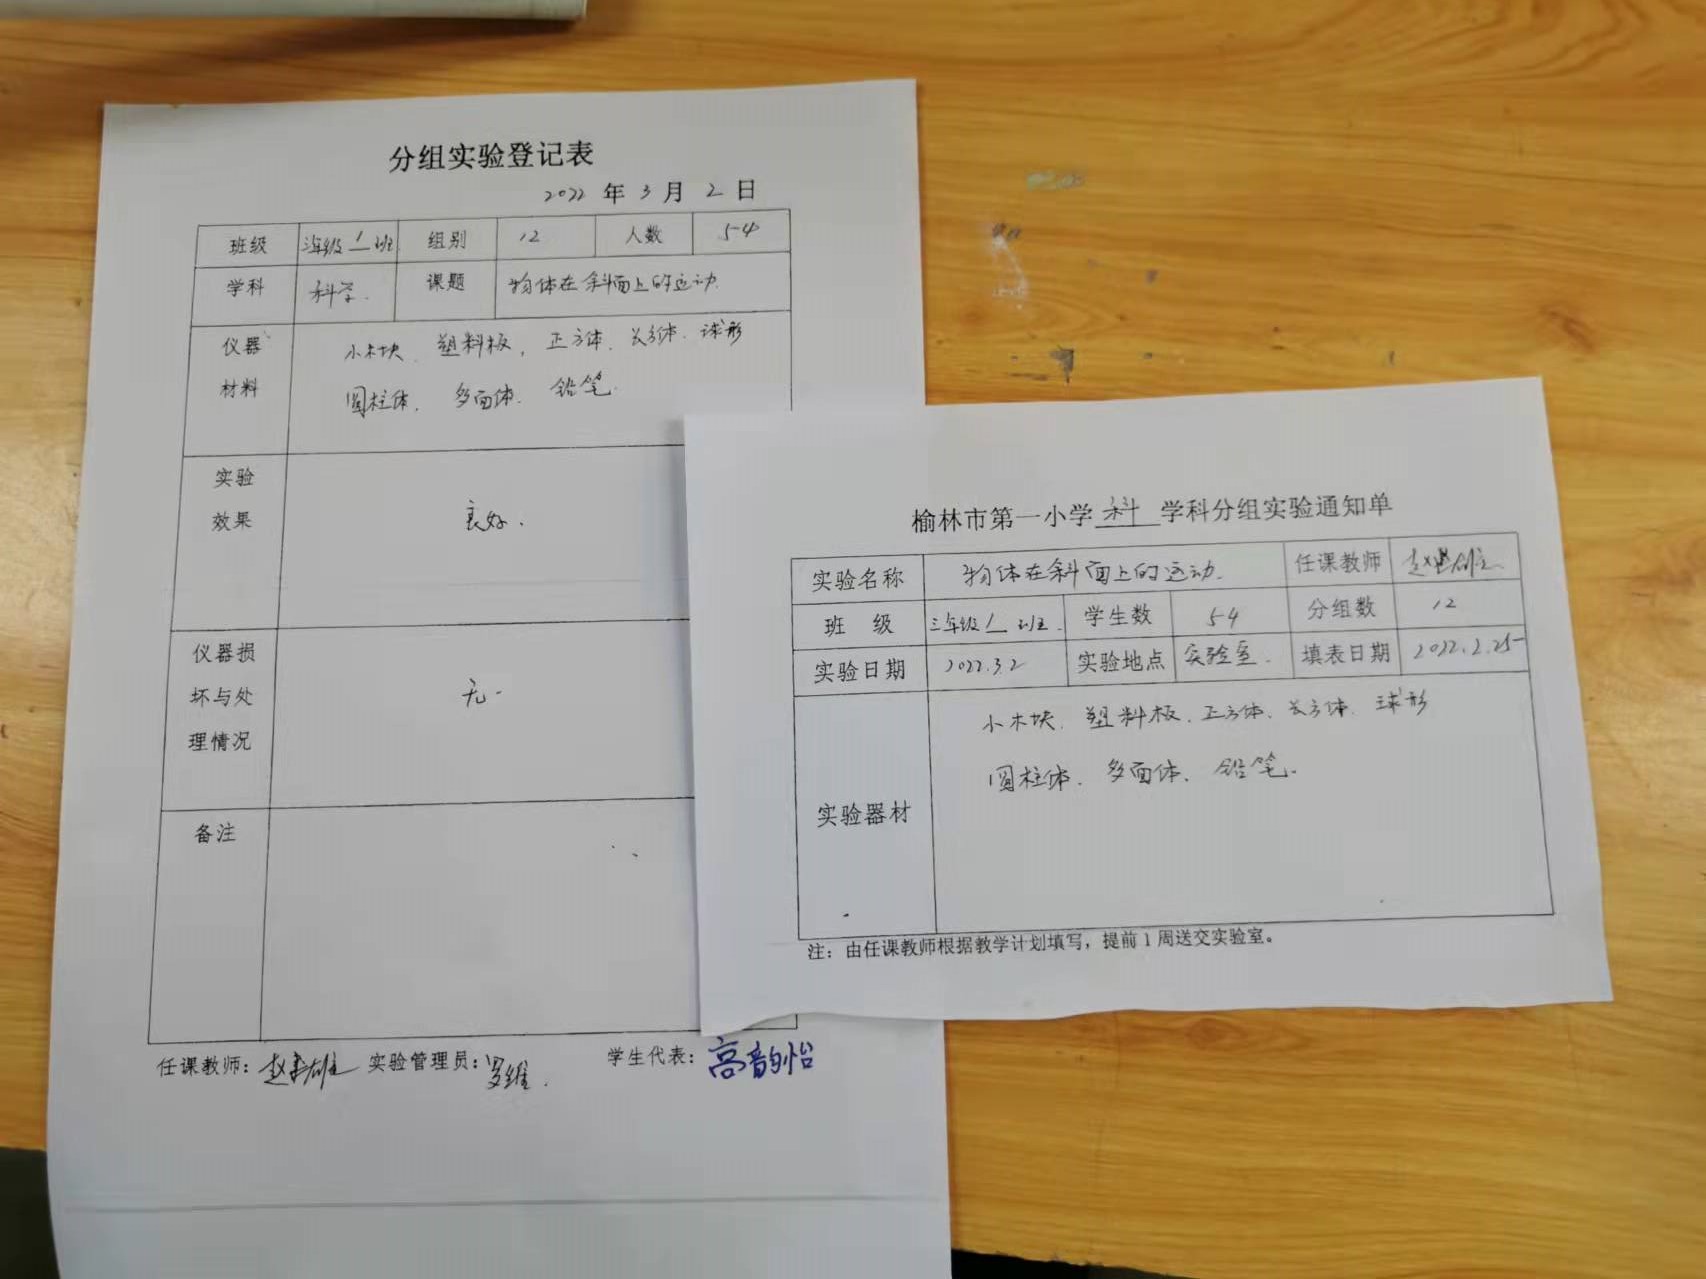 分组实验登记表
2022 年 3 月 2 日
班级 三年级 1 班 组别 12 人数 54
学科 科学. 课题 物体在斜面上的运动.
仪器 材料 小木块、塑料板, 正方体、长方体、球形
圆柱体、多面体、铅笔.
实验 效果 良好.
仪器损 坏与处 理情况 无.
备注
任课教师: 实验管理员: 罗维. 学生代表: 高韵怡
榆林市第一小学 科 学科分组实验通知单
实验名称 物体在斜面上的运动. 任课教师
班 级 三年级 1 班. 学生数 54 分组数 12
实验日期 2022.3.2 实验地点 实验室. 填表日期 2022.2.25
实验器材 小木块、塑料板、正方体、长方体、球形
圆柱体、多面体、铅笔.
注：由任课教师根据教学计划填写，提前 1 周送交实验室。